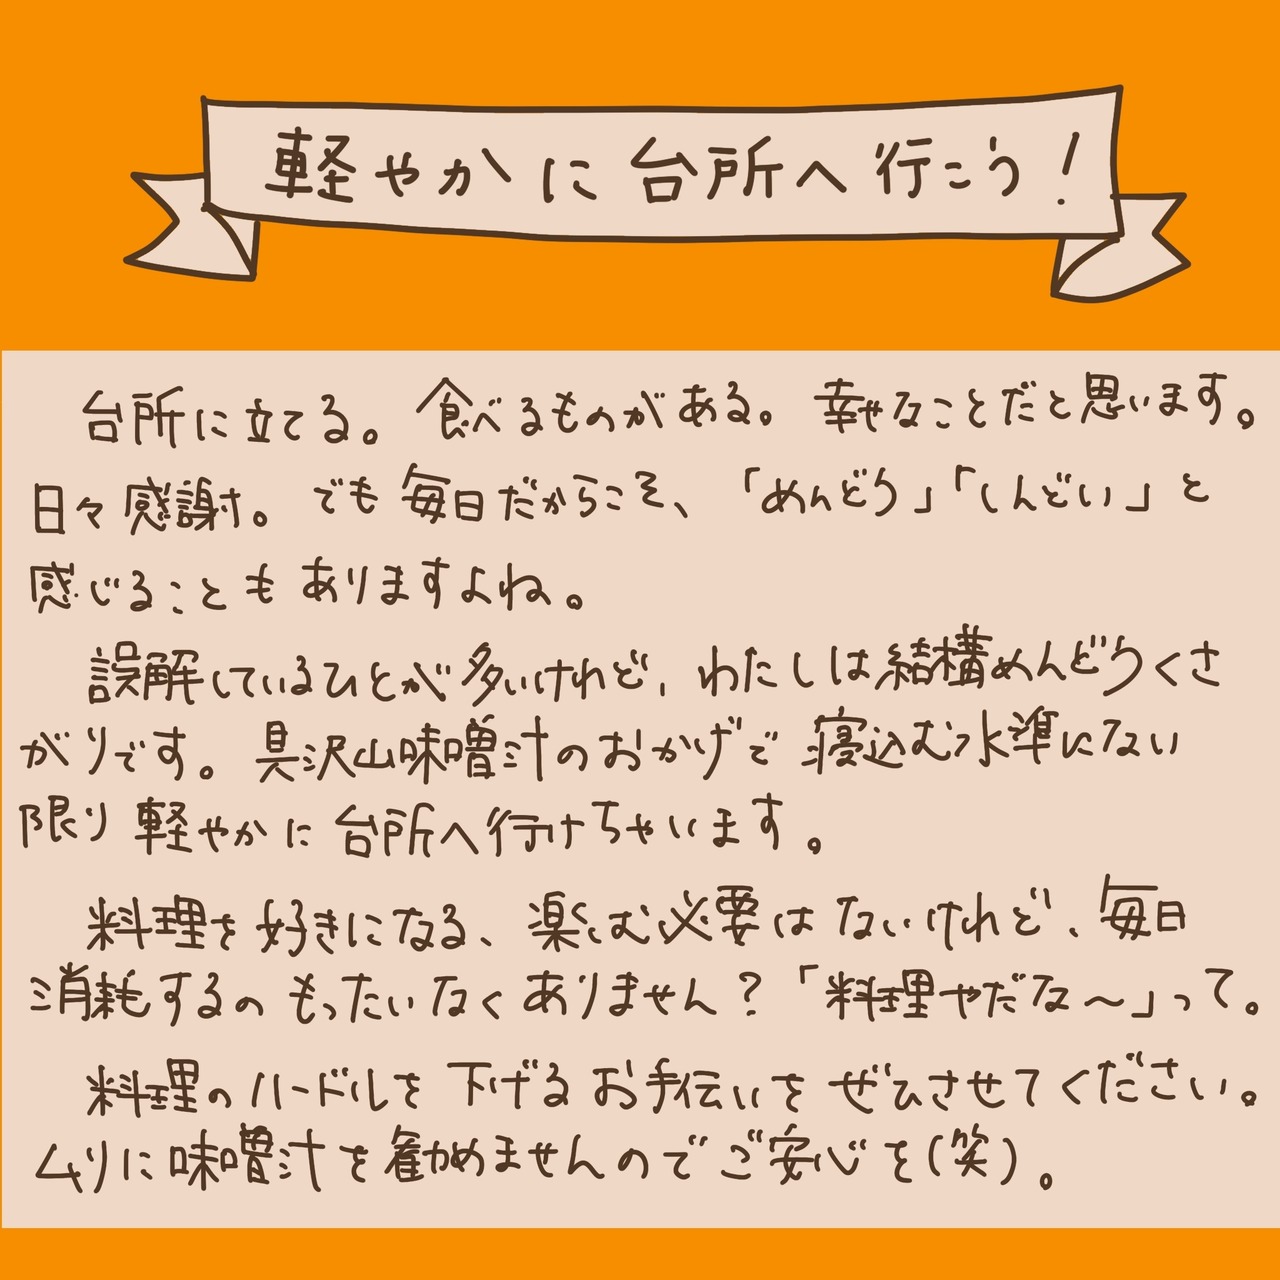 軽やかに台所へ行こう!
台所に立てる。食べるものがある。幸せなことだと思います。
日々感謝。でも毎日だからこそ、「めんどう」「しんどい」と
感じることもありますよね。
誤解しているひとが多いけれど、わたしは結構めんどうくさ
がりです。具沢山味噌汁のおかげで寝込む水準にない
限り軽やかに台所へ行けちゃいます。
料理を好きになる、楽しむ必要はないけれど、毎日
消耗するのもったいなくありません?「料理やだな〜」って。
料理のハードルを下げるお手伝いをぜひさせてください。
ムリに味噌汁を勧めませんのでご安心を(笑)。